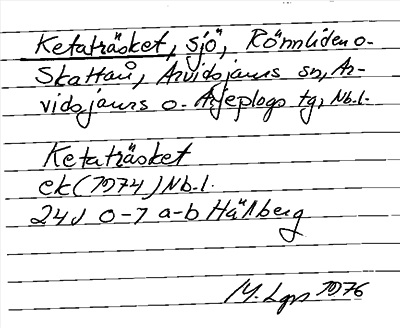 Ketaträsket, sjö, Rönnliden o.
Skattan, Arvidsjaurs sn, Ar-
vidsjaurs o. Arjeplogs tg, Nb.l.
Ketaträsket
ek (1974) Nb.l.
24J 0-7 a-b Hällberg
M. Lgn 1976